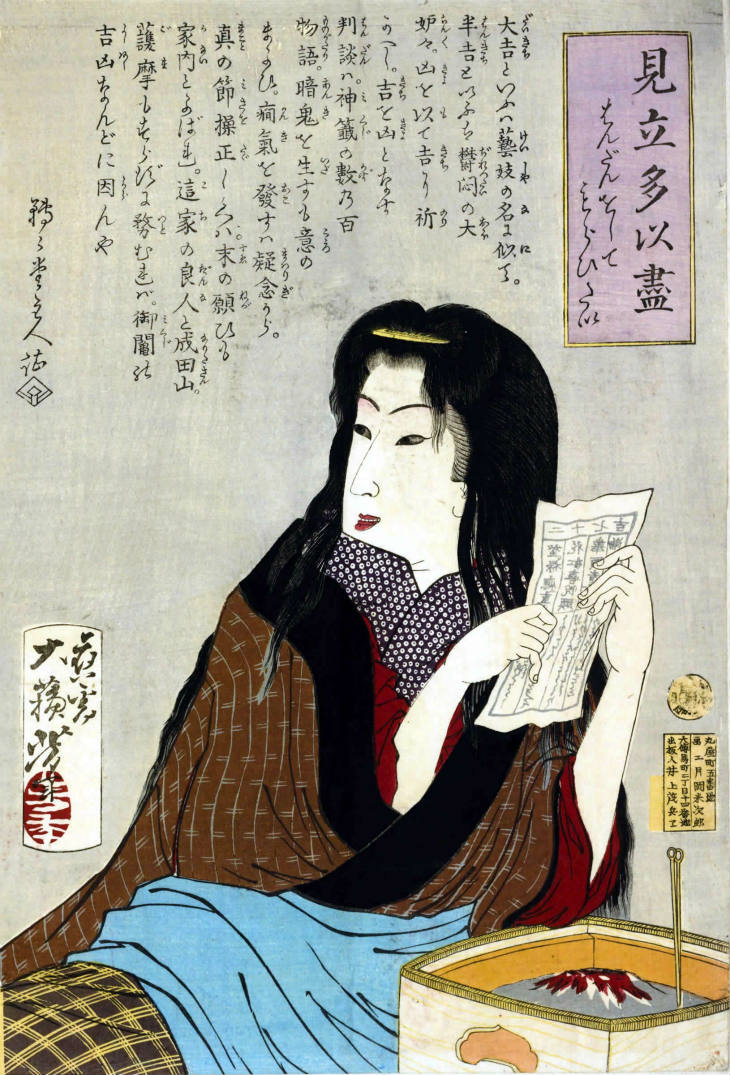 見立多以盡
はんだんをしてもらひたい
大吉といふハ藝妓の名に似て。
半吉といふも鬱悶の大
妒々。凶を以て吉に祈
べし。吉を凶となす
判談ハ神籤の數乃百
物語。暗鬼を生ずも意の
まよひ。癇氣を發すハ疑念から。
真の節操正しくバ末の願ひも
家内よろこばれ。這家の良人と成田山。
護摩も務むれバ。御鬮の
吉凶なんどに因んや
轉々堂主人誌
吉七十二
應需
大蘓芳年
丸屋町五番地
画工月岡米次郎
南傳馬町二丁目十四番地
出板人井上茂兵ヱ